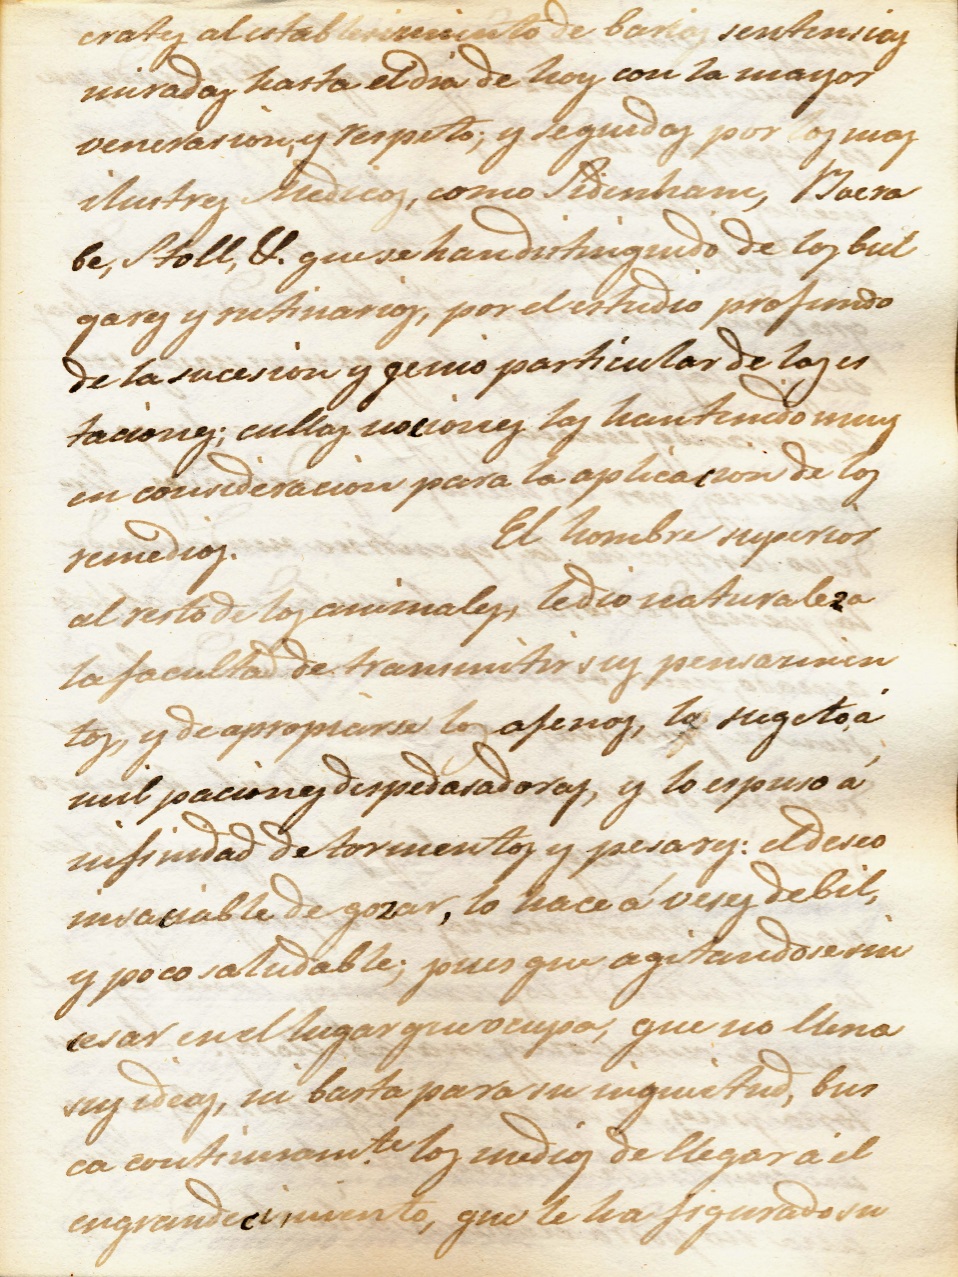 crates al establesimiento de barias sentensias
miradas hasta el dia de hoy con la mayor
venerasion, y respeto; y seguidas por los mas
ilustres Medicos, como Sidenham, Boera
be, Stoll, &. que se han distinguido de los bul
gares y rutinarios, por el estudio profundo
de la sucesion y genio particular de las es
taciones; cullas nociones las han tenido muy
en consideracion para la aplicacion de los
remedios. El hombre superior
al resto de los animales, le dio naturaleza
la facultad de transmitir sus pensamien
tos, y de apropiarse los agenos, lo sugetó, á
mil paciones despedasadoras, y lo espuso á
infinidad de tormentos y pesares: el deseo
insaciable de gozar, lo hace á veses debil,
y poco saludable; pues que agitandose sin
cesar en el lugar que ocupa, que no llena
sus ideas, ni basta para su inquietud, bus
ca continuam.te los medios de llegar á el
engrandecimiento, que le ha figurado su